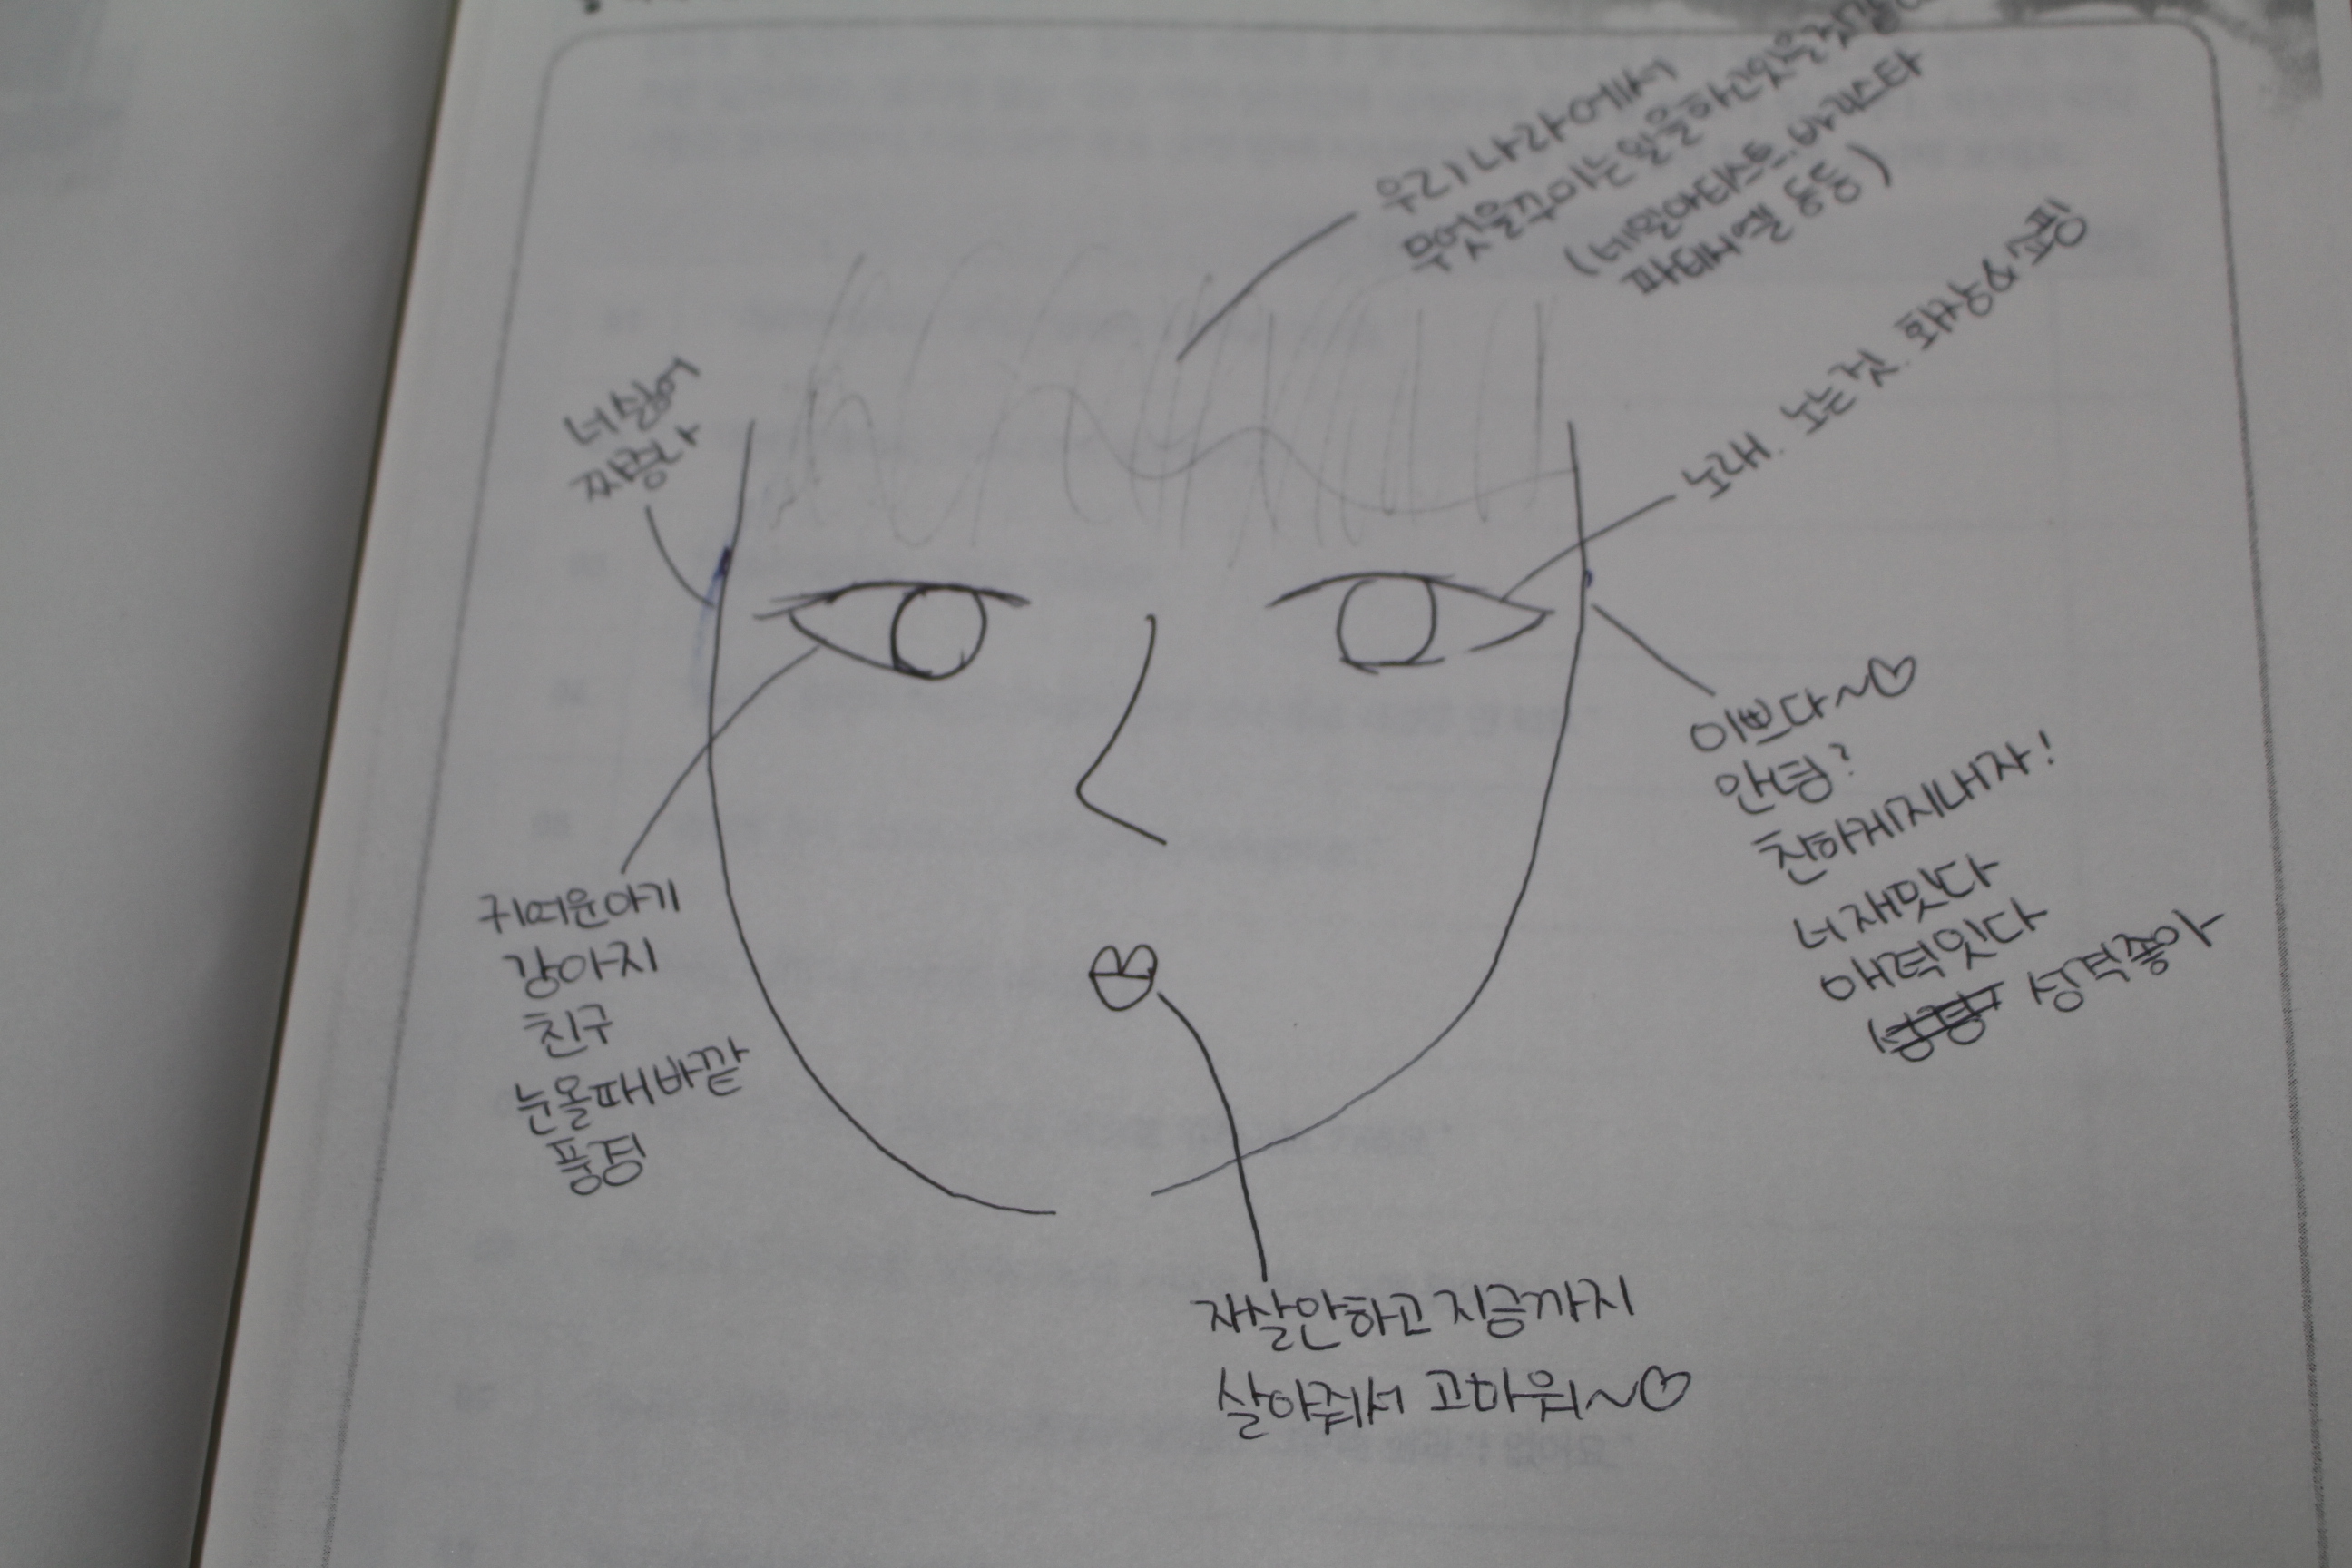 우리나라에서
무엇을꾸미는일을하고있을것같
(네일아티스트..바리스타
파티시엘 등등)
노래. 노는것. 화장&쇼핑
너싫어
짜령나
이쁘다~♡
안텅?
친하게지내자!
너재밋다
매력잇다
성격좋아
귀여운아기
강아지
친구
눈올때바깥
풍경
자살안하고지금까지
살아줘서 고마워~♡